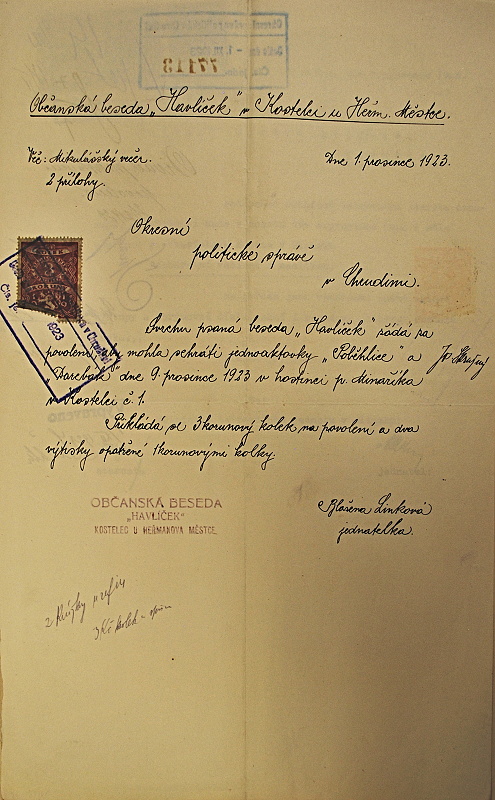 77113
Občanská beseda „Havlíček" v Kostelci u Heřm. Městce.
Věc: Mikulášský večer.
Dne 1. prosince 1923.
2 přílohy.
Okresní
politické správě
v Chrudimi.
Svrchu psaná beseda „Havlíček" žádá za
povolení, by mohla sehráti jednoaktovky „Polčhlice" a
„Darebák" dne 9. prosince 1923 v hostinci p. Minaříka
v Kostelci č. 1.
Přikládá se 3korunový kolek na povolení a dva
výtisky opatřené 1korunovými kolky.
OBČANSKÁ BESEDA
„HAVLÍČEK"
KOSTELEC U HEŘMANOVA MĚSTCE.
Blažena Linková
jednatelka.
1923
3
2
3 Kč kolek